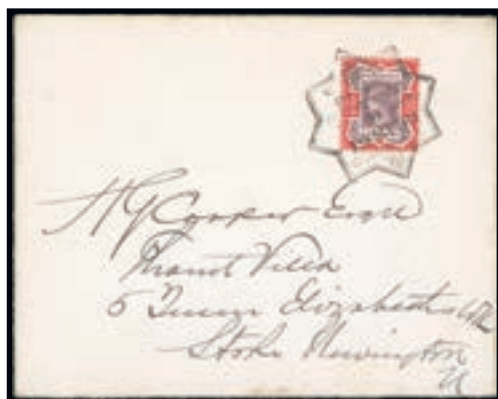 H G Cooper Esq
Villa
5 Queen Elizabeths
Stoke Newington
N